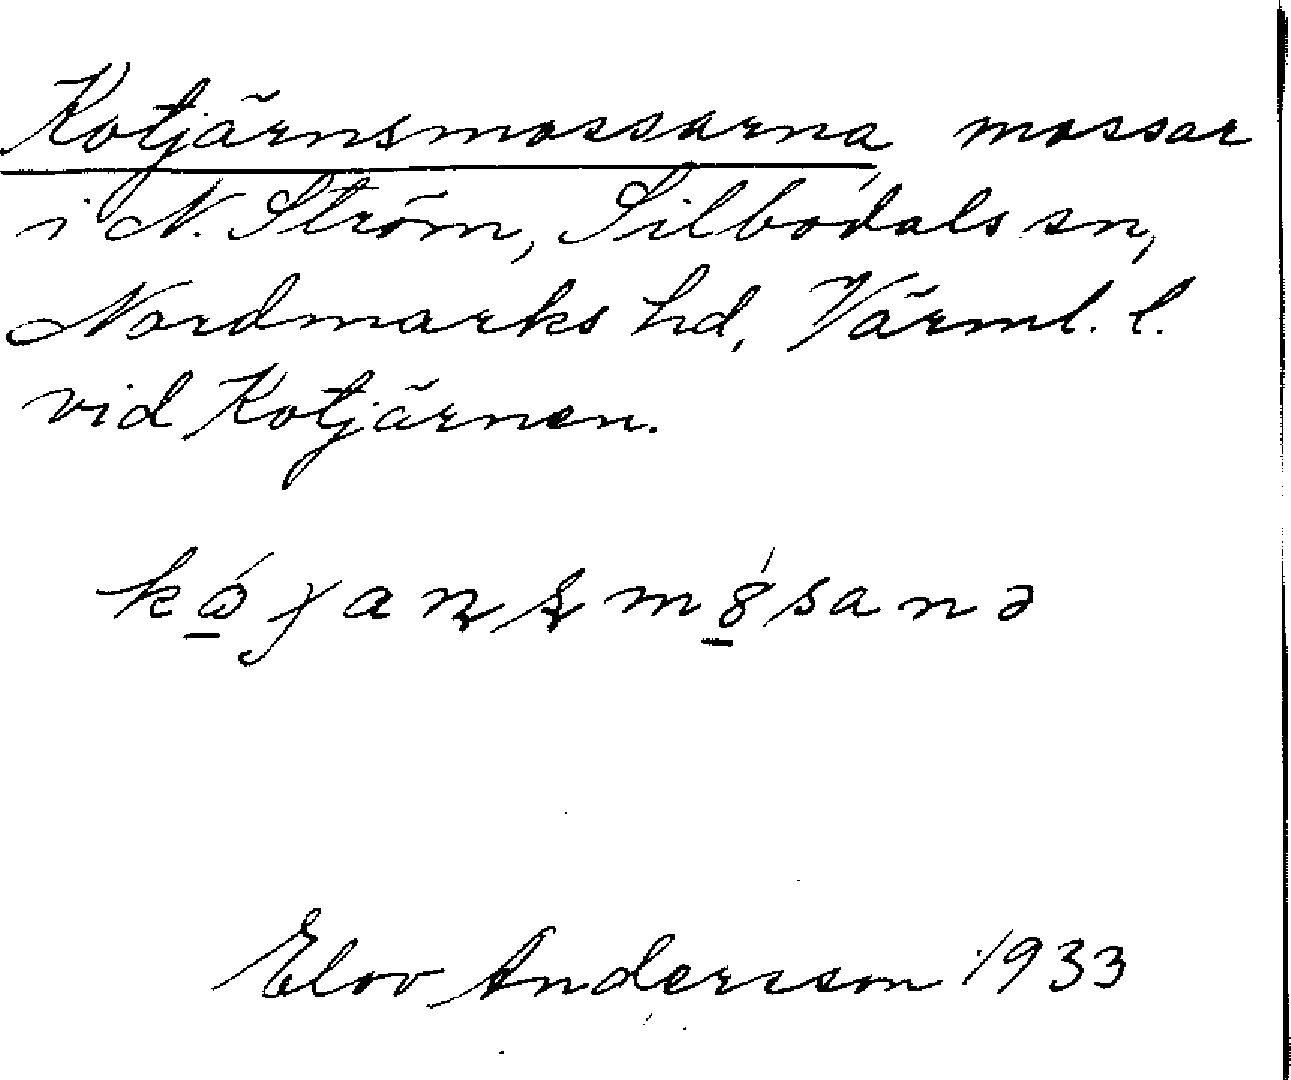 Kotjärnsmossarna mossar
i N. Ström, Silbodals sn,
Nordmarks hd, Värml. l.
vid Kotjärnen.
Elov Andersson 1933